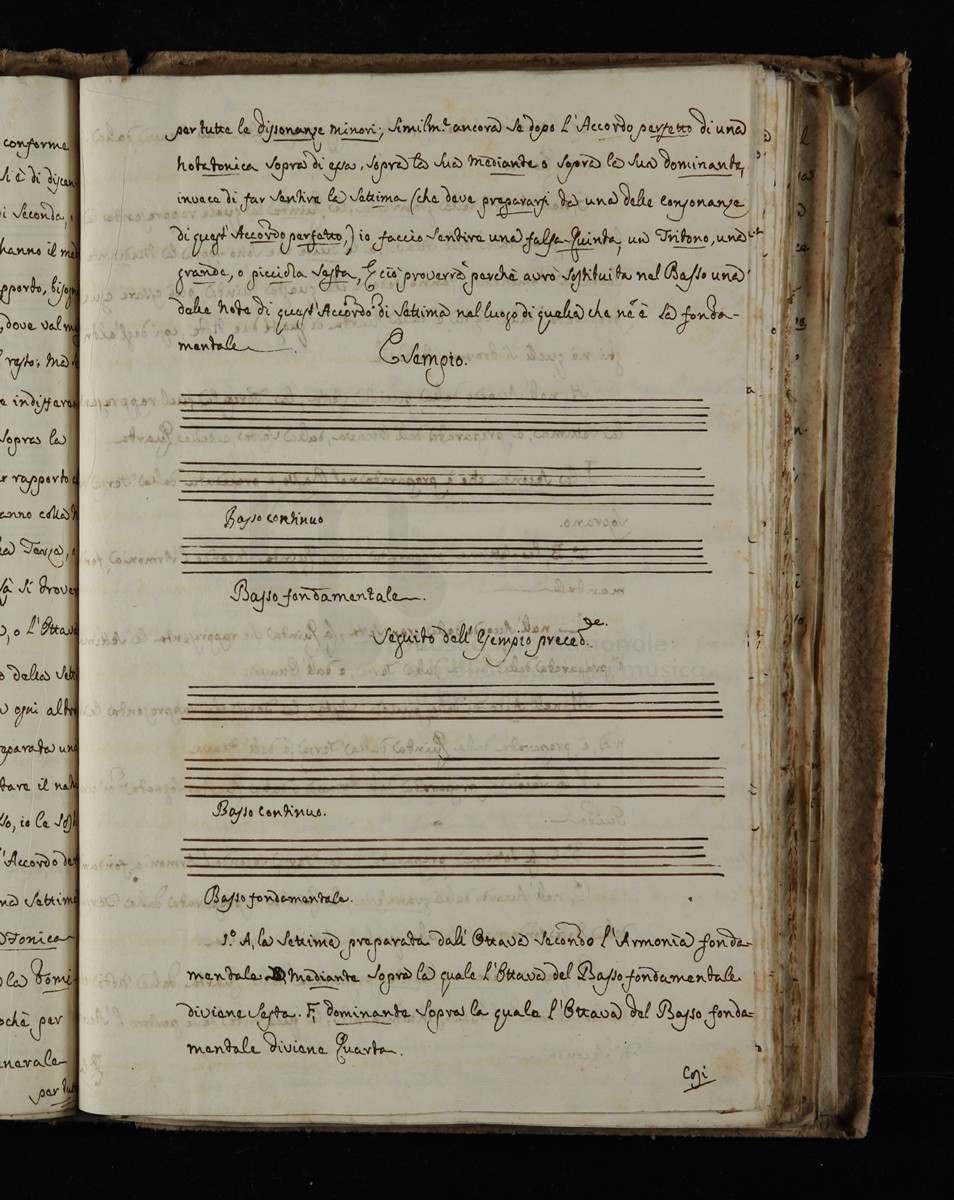 conforme
si è di discen
di Seconda,
hanno il me
pporto, bisogn
, dove val m
resto; ma
e indifferen
Sopra la
r rapporto
anno colla
la Terza,
si trove
, o l'Ottava
o della Sett
ogni altr
eparata una
tare il na
so, io la So
'Accordo de
na Settim
Tonica
la Domi
ochè per
nerale
per tut
per tutte le dissonanze minori; Similm.te ancora se dopo l'Accordo perfetto di una
nota tonica sopra di essa, sopra la sua Mediante o sopra la sua dominante,
invece di far sentire la Settima (che deve prepararsi da una delle consonanze
di quest'Accordo perfetto,) io faccio sentire una falsa Quinta, un Tritono, una
grande, o picciola Sesta, E ciò proverrà perchè avrò sostituita nel Basso una
delle note di quest'Accordo di Settima nel luogo di quella che ne è la fonda-
mentale.
Esempio.
Basso continuo
Basso fondamentale.
Seguito dell'Esempio preced.te
Basso continuo.
Basso fondamentale.
1.o A, la Settima preparata dall'Ottava secondo l'Armonia fonda=
mentale. D, Mediante sopra la quale l'Ottava del Basso fondamentale
diviene Sesta. F, dominante sopra la quale l'Ottava del Basso fonda=
mentale diviene Quarta.
Così